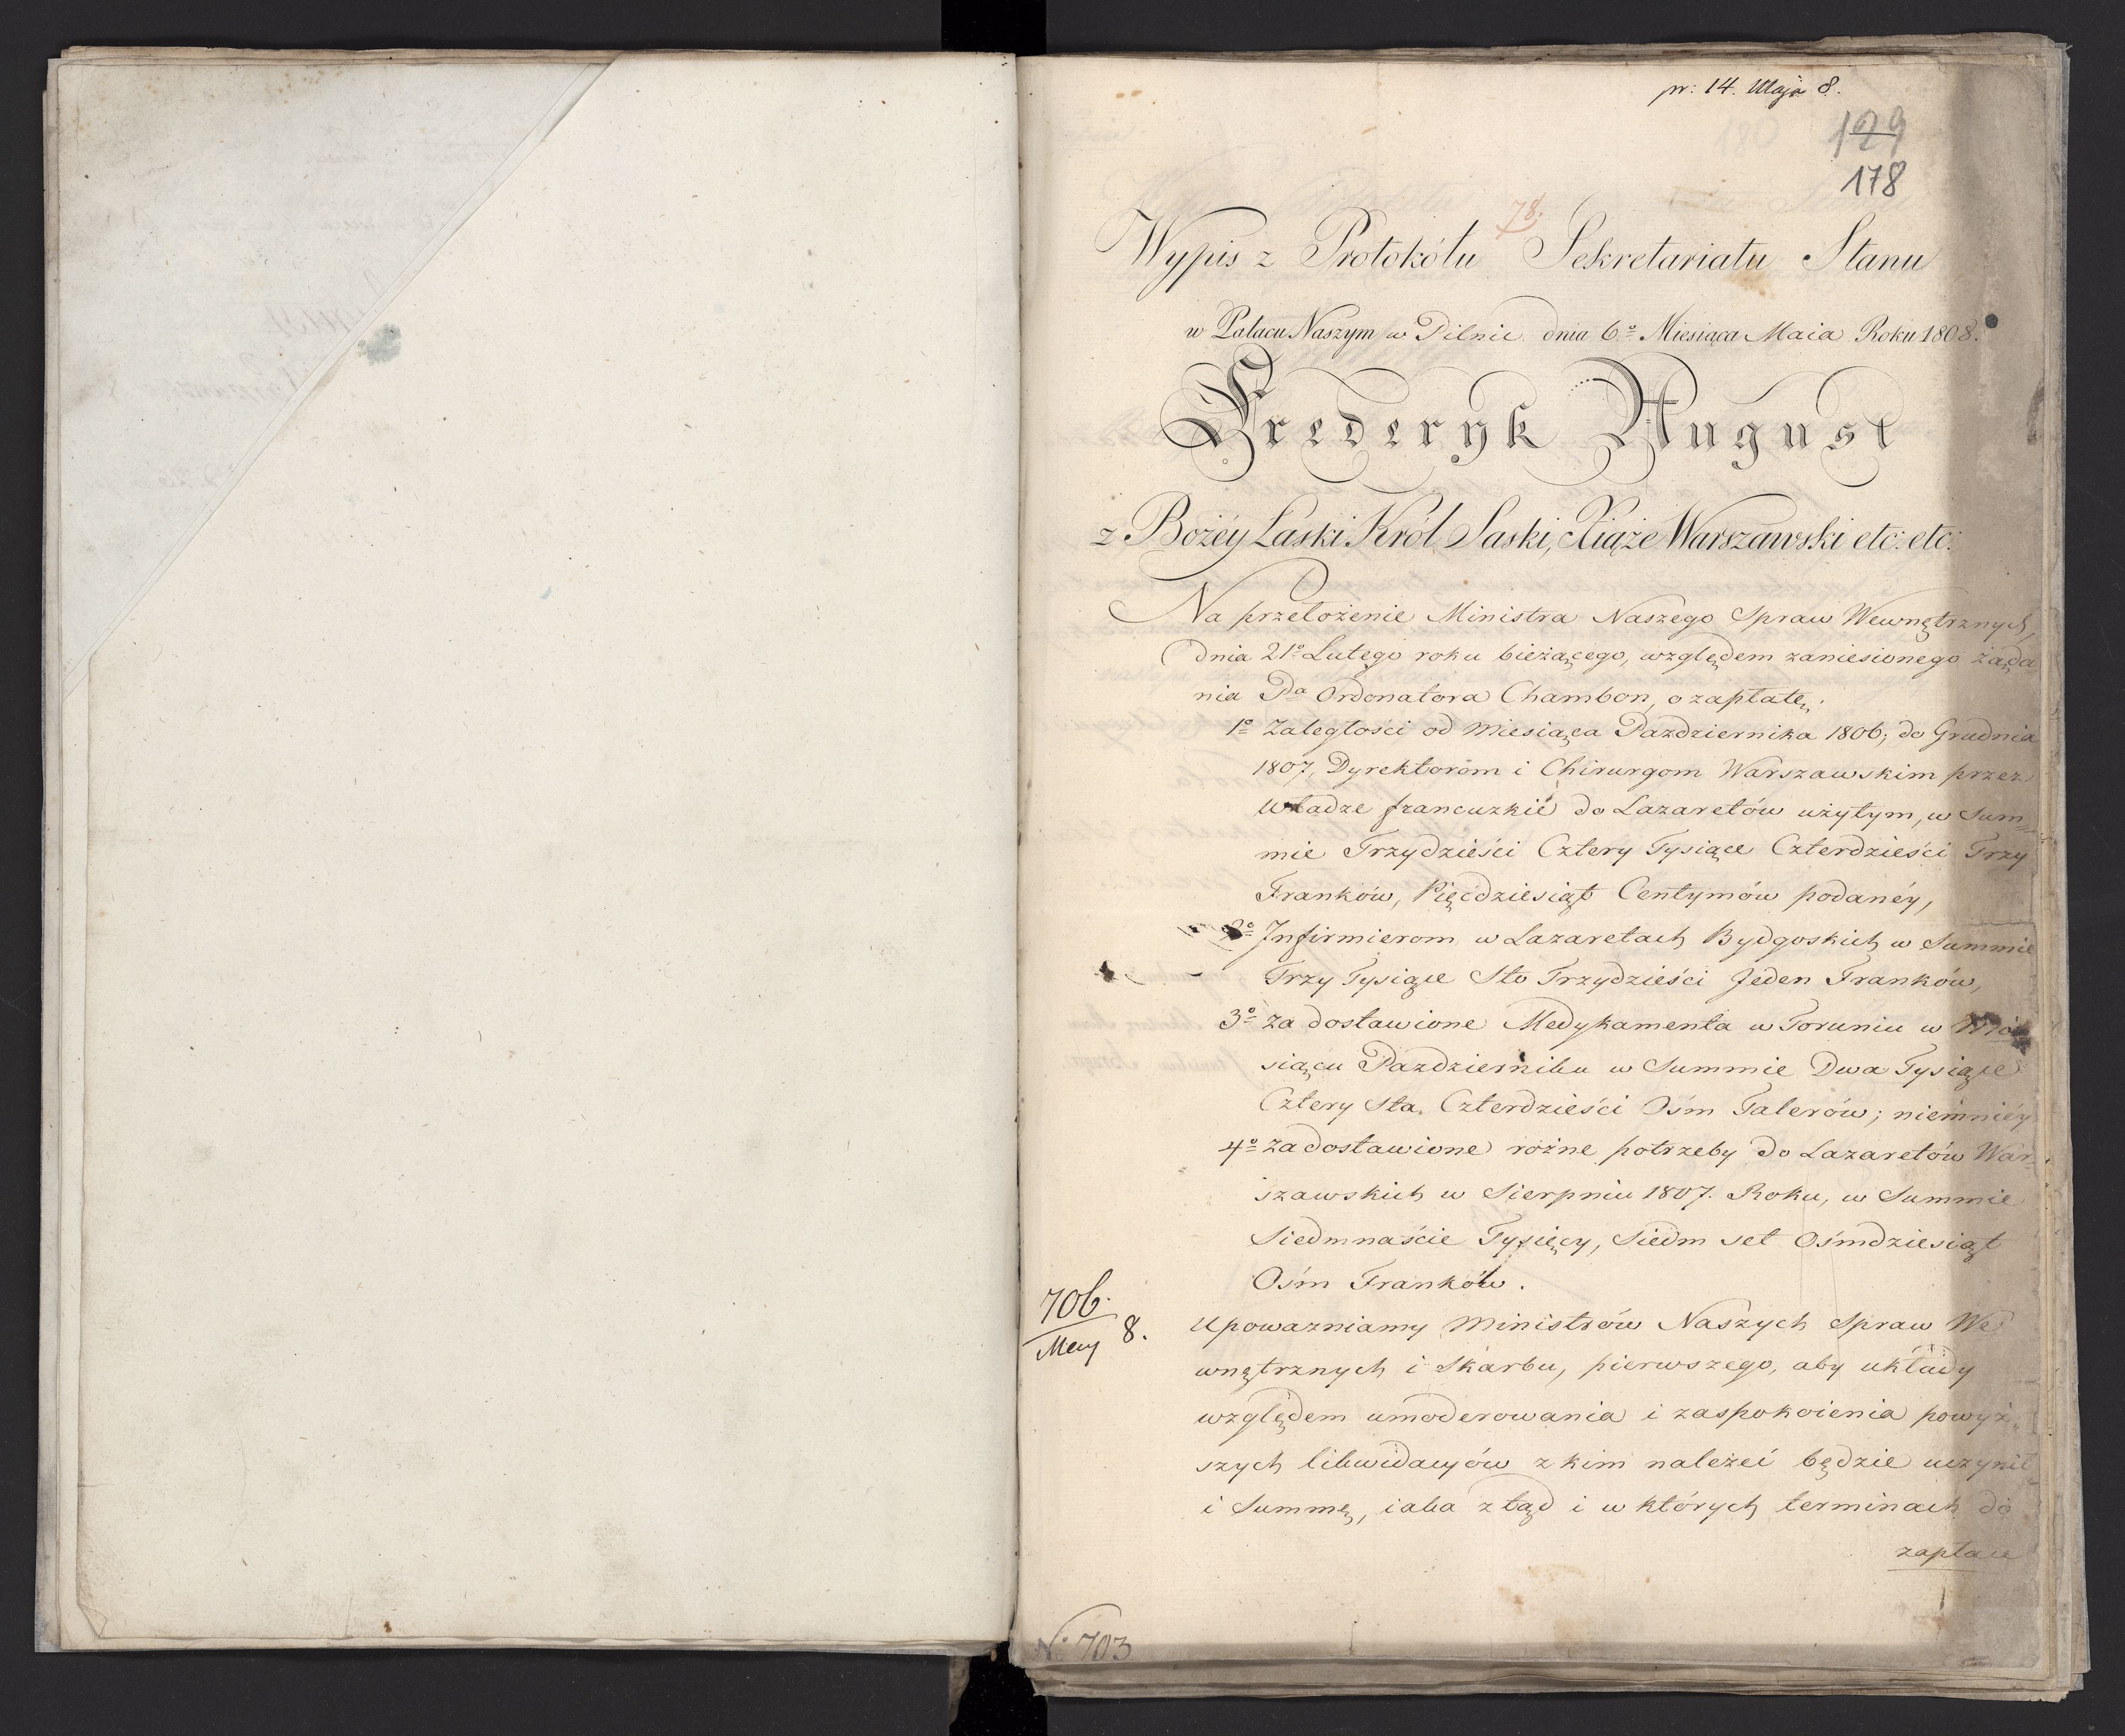 pr: 14. Maja 8.
129
178
78.
Wypis z Protokółu Sekretariatu Stanu
w Pałacu Naszym w Pilnic dnia 6º Miesiąca Maia Roku 1808.
Frederyk August
z Bożéy Łaski Król Saski, Xiąże Warszawski etc: etc:
Na przełożenie Ministra Naszego Spraw Wewnętrznych,
dnia 21º Lutego roku bieżącego, względem zaniesionego żąda
nia Pa Ordonatora Chambon, o zapłatę:
1º Zaległości od Miesiąca Pazdziernika 1806; do Grudnia
1807, Dyrektoróm i Chirurgom Warszawskim przez
Władze francuzkié do Lazaretów użytym, w Sum=
mie Trzydzieści Cztery Tysiące Czterdzieści Trzy
Franków, Pięćdziesiąt Centymów podanéy,
2º Infirmierom w Lazaretach Bydgoskich w Summie
Trzy Tysiące Sto Trzydzieści Jeden Franków,
3º za dostawione Medykamenta w Toruniu w Mie
siącu Pazdzierniku w Summie Dwa Tysiące
Cztery Sta Czterdzieści Ośm Talerów; niemniéy
4º za dostawione rożne potrzeby do Lazaretów War=
szawskich w Sierpniu 1807. Roku, w Summie
Siedmnaście Tysięcy, Siedm set Ośmdziesiąt
Ośm Franków.
706.
Mey 8.
Upoważniamy Ministrów Naszych Spraw We
wnętrznych i Skarbu, pierwszego, aby układy
względem umoderowania i zaspokoienia powyż=
szych likwidacyów z kim należeć będzie uczynił
i Summę, iaka ztąd i w których terminach do
zapłace
Nº 703